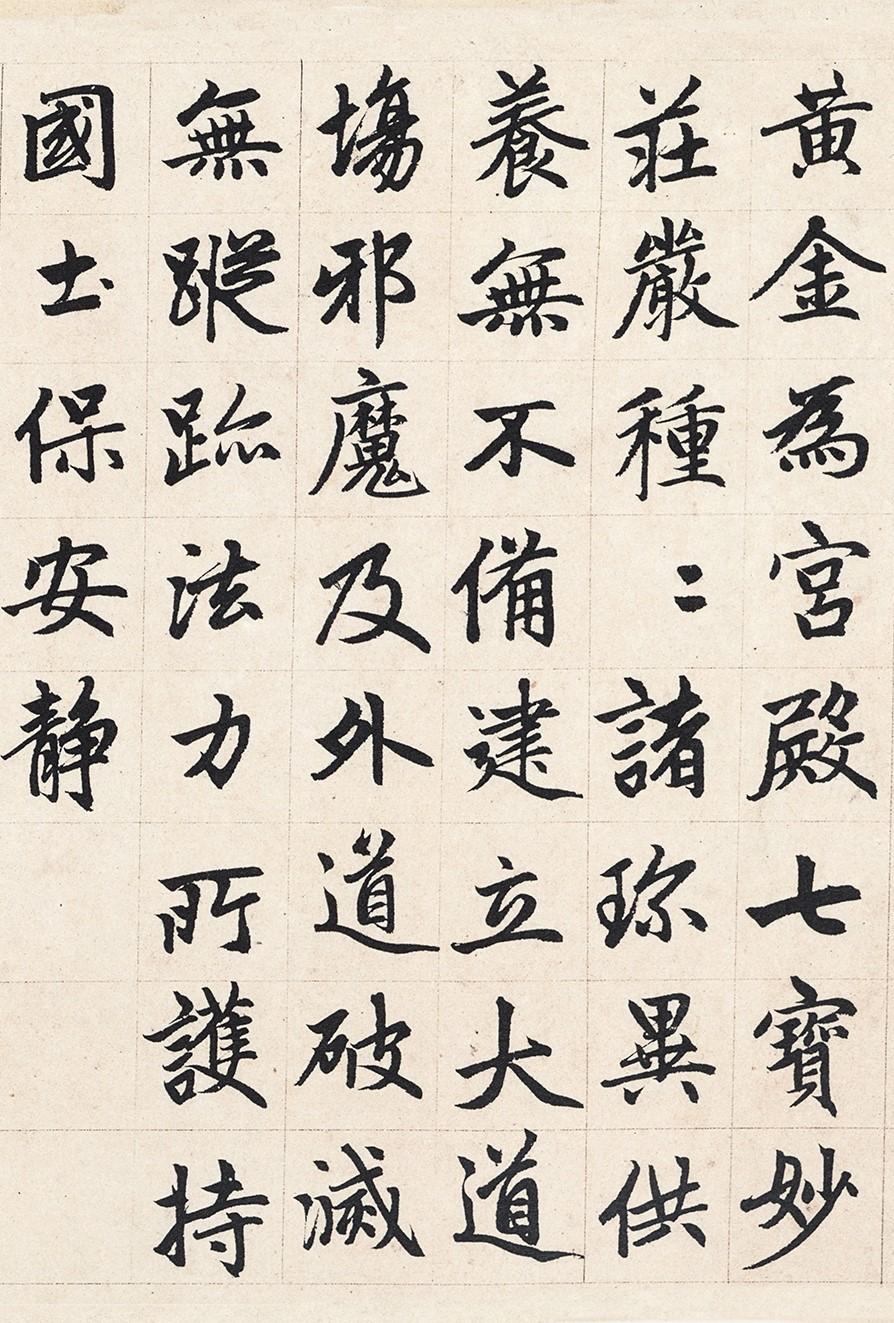 黄金為宮殿七寶妙
莊嚴種〻諸珎異供
養無不備建立大道
塲邪魔及外道破滅
無蹤跡法力所護持
國土保安静